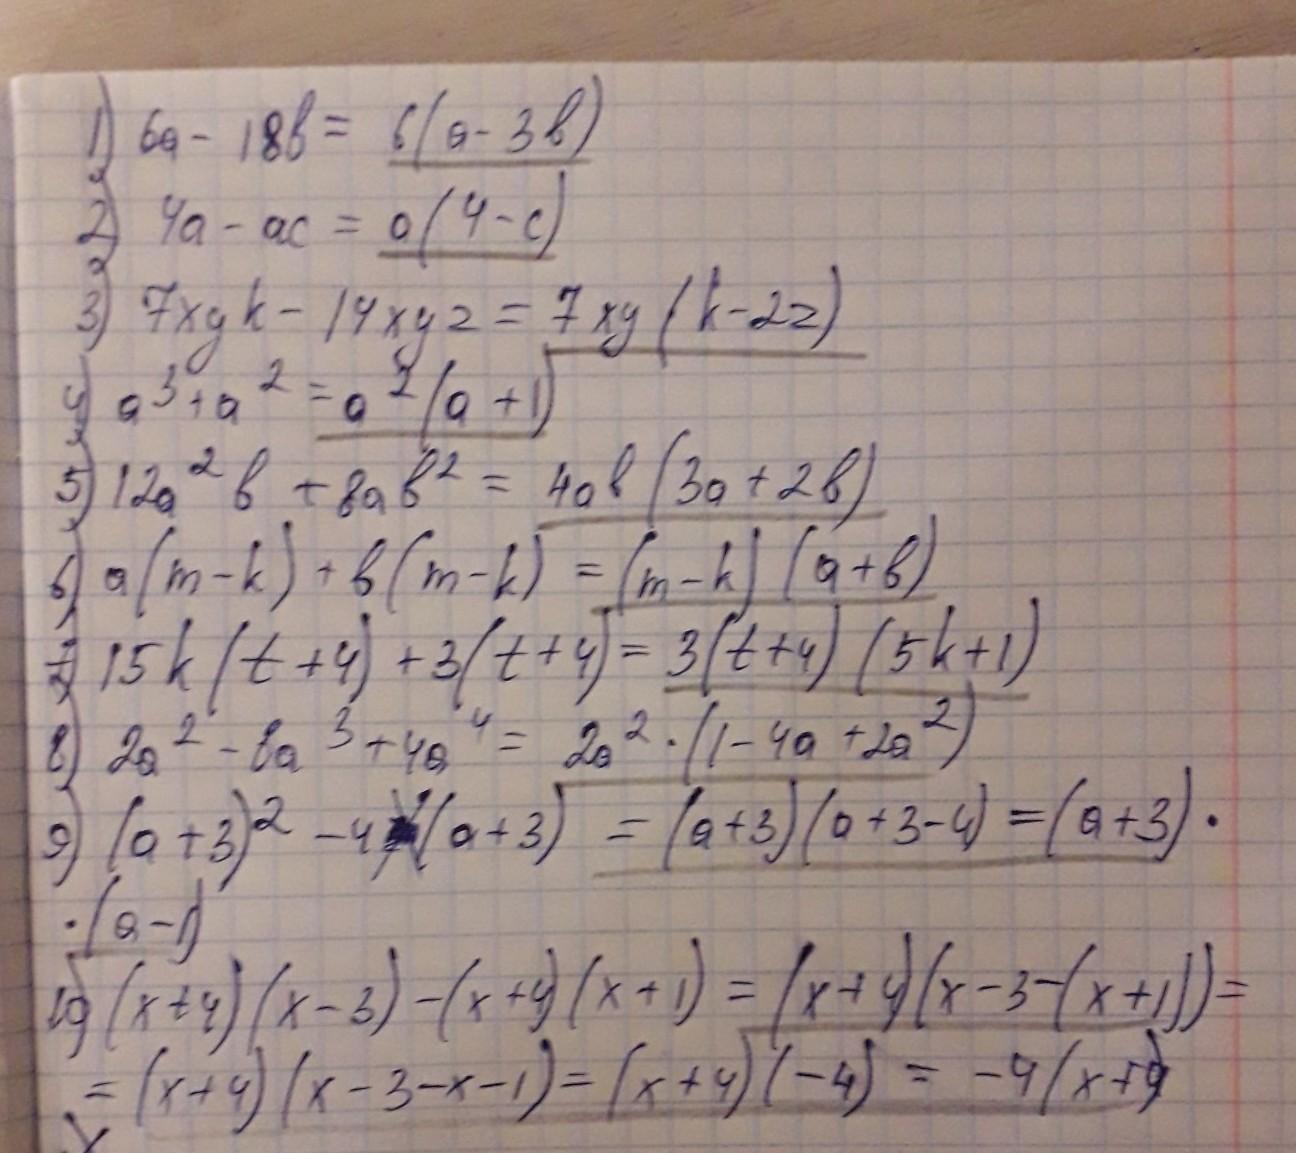 1) 6a - 18b = 6(a - 3b)
2) 4a - ac = a(4 - c)
3) 7xyk - 14xyz = 7xy(k - 2z)
4) a³ + a² = a²(a + 1)
5) 12a²b + 8ab² = 4ab(3a + 2b)
6) a(m - k) + b(m - k) = (m - k)(a + b)
7) 15k(t + 4) + 3(t + 4) = 3(t + 4)(5k + 1)
8) 2a² - 8a³ + 4a⁴ = 2a² · (1 - 4a + 2a²)
9) (a + 3)² - 4(a + 3) = (a + 3)(a + 3 - 4) = (a + 3) ·
· (a - 1)
10) (x + 4)(x - 3) - (x + 4)(x + 1) = (x + 4)(x - 3 - (x + 1)) =
= (x + 4)(x - 3 - x - 1) = (x + 4)(-4) = -4(x + 4)